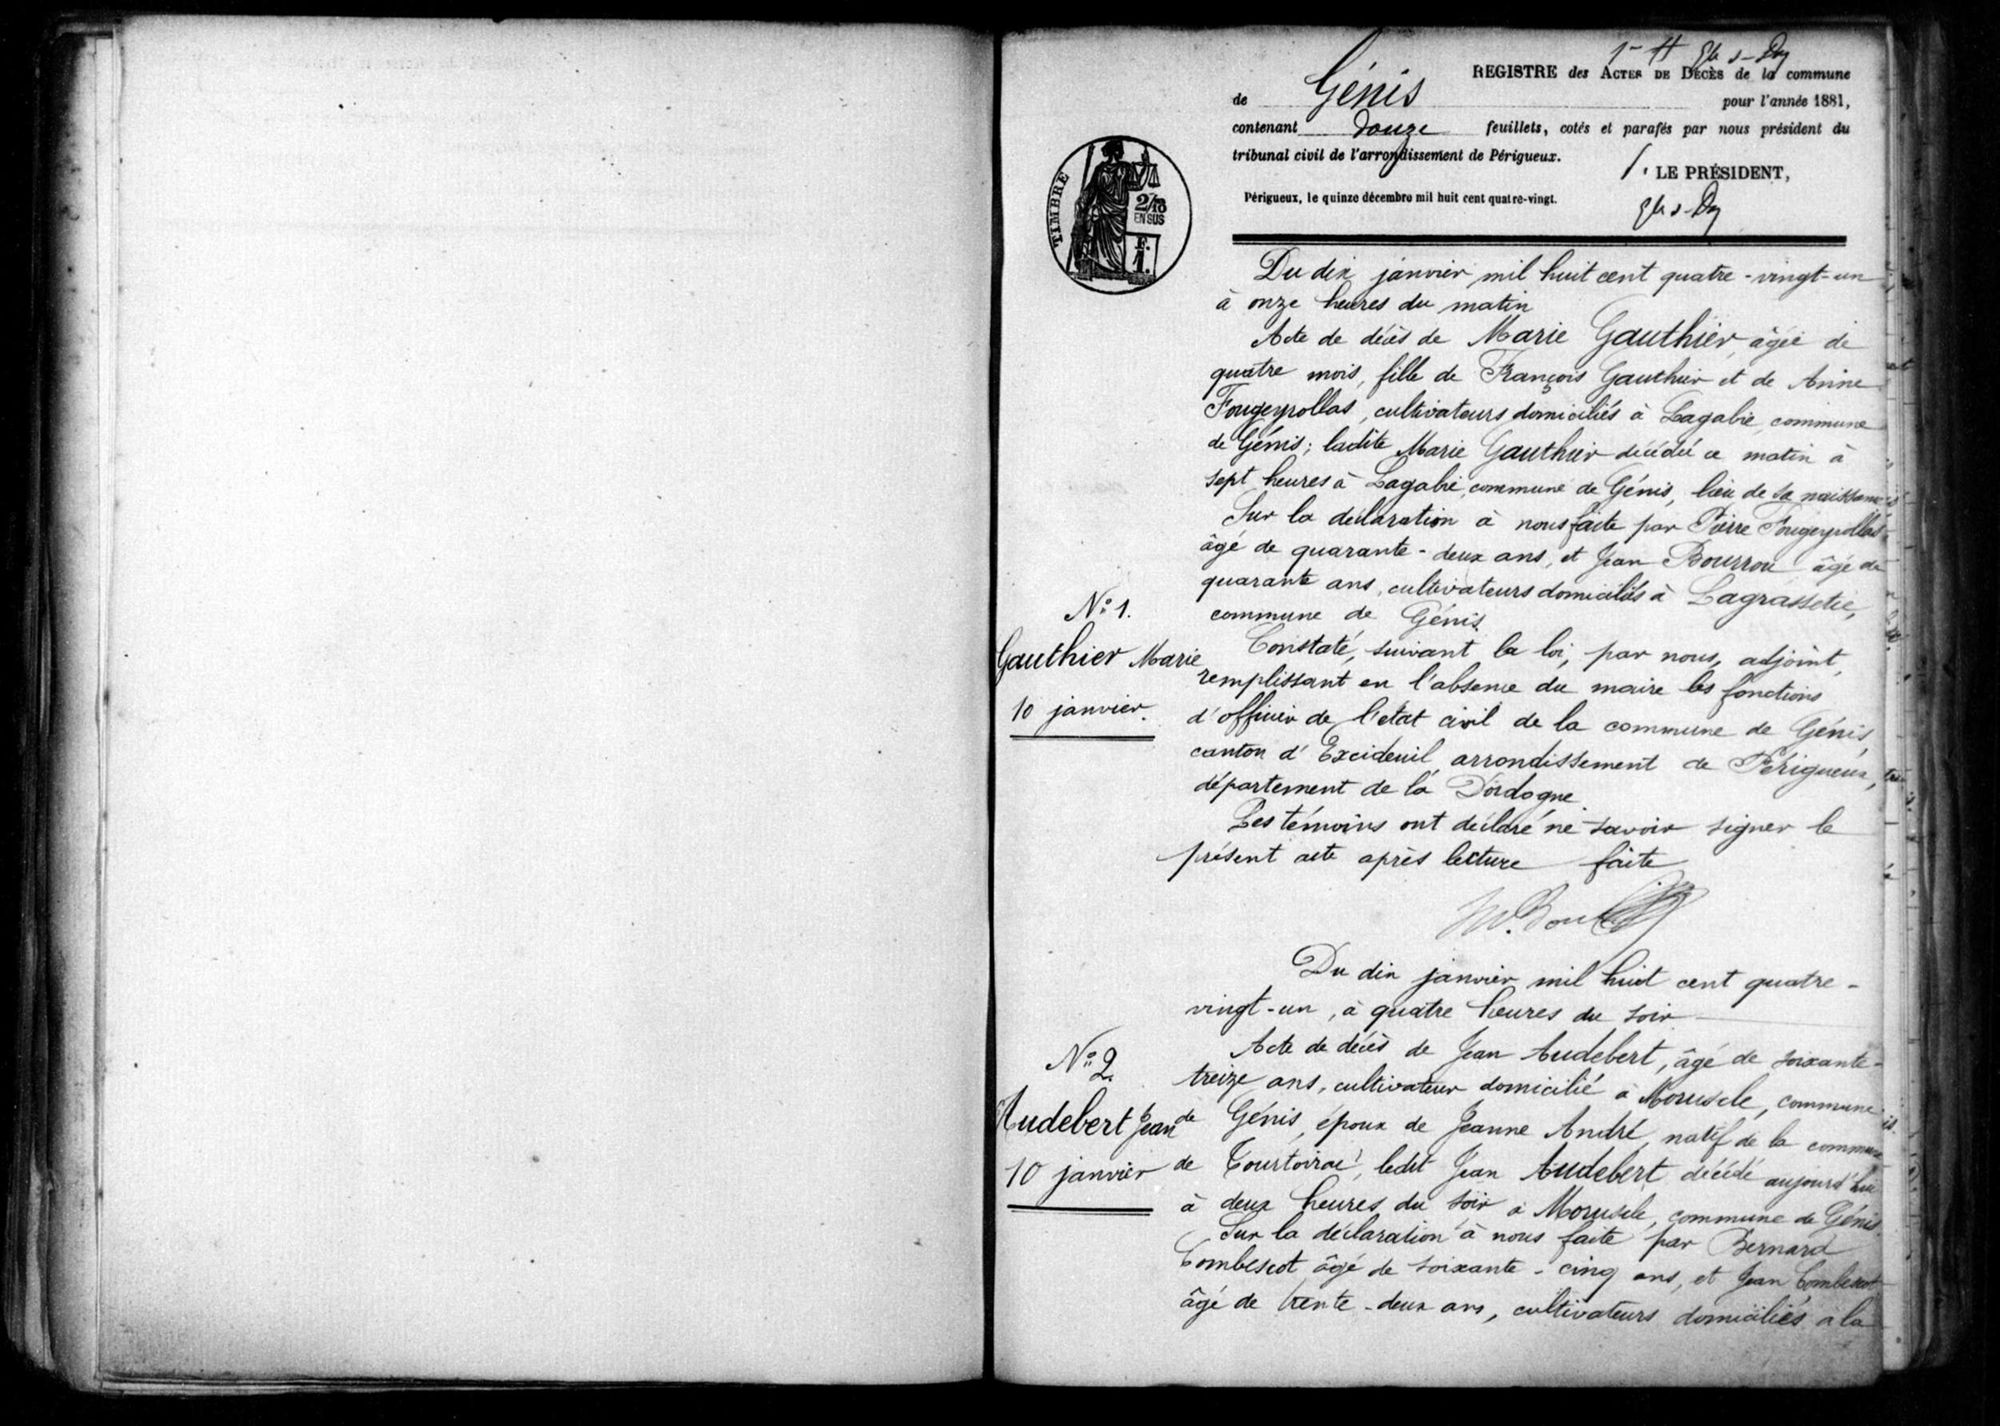 REGISTRE des ACTES DE DÉCÈS de la commune
de Génis pour l'année 1881,
contenant douze feuillets, cotés et parafés par nous président du
tribunal civil de l'arrondissement de Périgueux.
LE PRÉSIDENT,
Périgueux, le quinze décembre mil huit cent quatre-vingt.
TIMBRE
2/10
EN SUS
F.
1.
Du dix janvier mil huit cent quatre-vingt-un
à onze heures du matin
Acte de décès de Marie Gauthier, âgée de
quatre mois, fille de François Gauthier et de Anne
Fougeyrollas, cultivateurs domiciliés à Lagabie, commune
de Génis; ladite Marie Gauthier décédée ce matin à
sept heures à Lagabie, commune de Génis, lieu de sa naissance
Sur la déclaration à nous faite par Pierre Fougeyrollas
âgé de quarante-deux ans, et Jean Bourrou âgé de
quarante ans, cultivateurs domiciliés à Lagrassetie,
commune de Génis.
Constaté, suivant la loi, par nous, adjoint,
remplissant en l'absence du maire les fonctions
d'officier de l'état civil de la commune de Génis,
canton d'Excideuil, arrondissement de Périgueux,
département de la Dordogne.
Les témoins ont déclaré ne savoir signer le
présent acte après lecture faite
N° 1.
Gauthier Marie
10 janvier.
Du dix janvier mil huit cent quatre-
vingt-un, à quatre heures du soir
Acte de décès de Jean Audebert, âgé de soixante-
treize ans, cultivateur domicilié à Moruscle, commune
de Génis, époux de Jeanne André, natif de la commune
de Tourtoirac, ledit Jean Audebert décédé aujourd'hui
à deux heures du soir à Moruscle, commune de Génis.
Sur la déclaration à nous faite par Bernard
Combescot âgé de soixante-cinq ans, et Jean Combescot
âgé de trente-deux ans, cultivateurs domiciliés à la
N° 2.
Audebert Jean
10 janvier